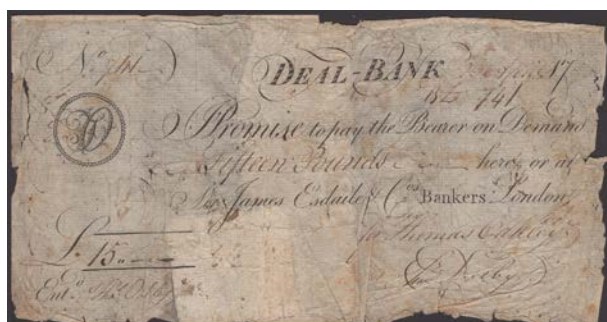 No. 741
DEAL-BANK
741
I Promise to pay the Bearer on Demand
Fifteen Pounds here or at
Sir James Esdaile & Cos. Bankers London
for Thomas Oakley
£ 15
Entd.